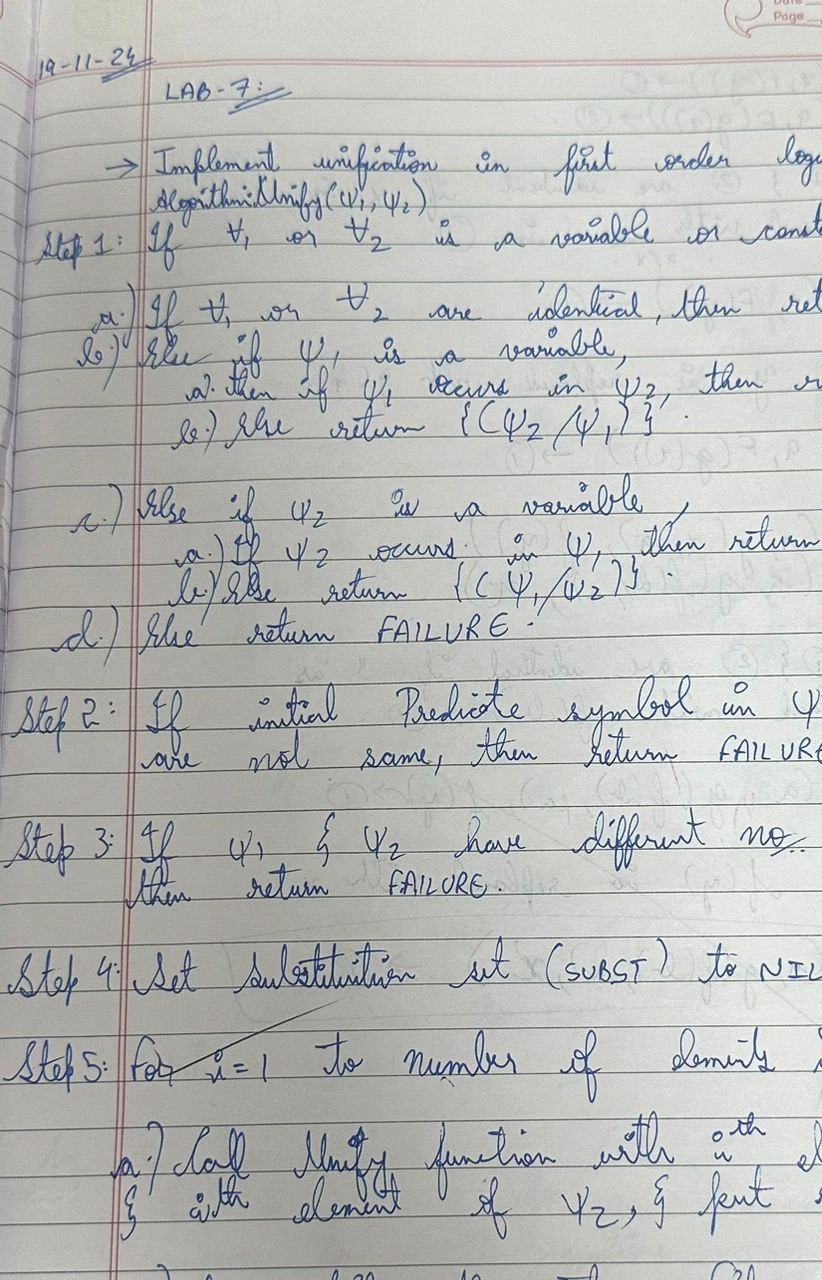 Date
Page
19-11-24
LAB-7:
→ Implement unification in first order
Algorithm: Unify(Ψ₁, Ψ₂)
Step 1: If ∀₁ or ∀₂ is a variable or
a.) If ∀₁ or ∀₂ are idential, then
b.) Else if Ψ₁ is a variable,
a. then if Ψ₁ occurs in Ψ₂, then
b.) Else return {(Ψ₂/Ψ₁)}.
c.) Else if Ψ₂ is a variable,
a.) If Ψ₂ occurs in Ψ₁, then return
b.) Else return {(Ψ₁/Ψ₂)}.
d.) Else return FAILURE.
Step 2: If initial Predicate symbol in Ψ
are not same, then return FAILURE
Step 3: If Ψ₁ & Ψ₂ have different no.
then return FAILURE.
Step 4: Set Substituition set (SUBST) to NIL
Step 5: For i=1 to number of elements
a.) Call Unify function with ith
& ith element of Ψ₂, & put